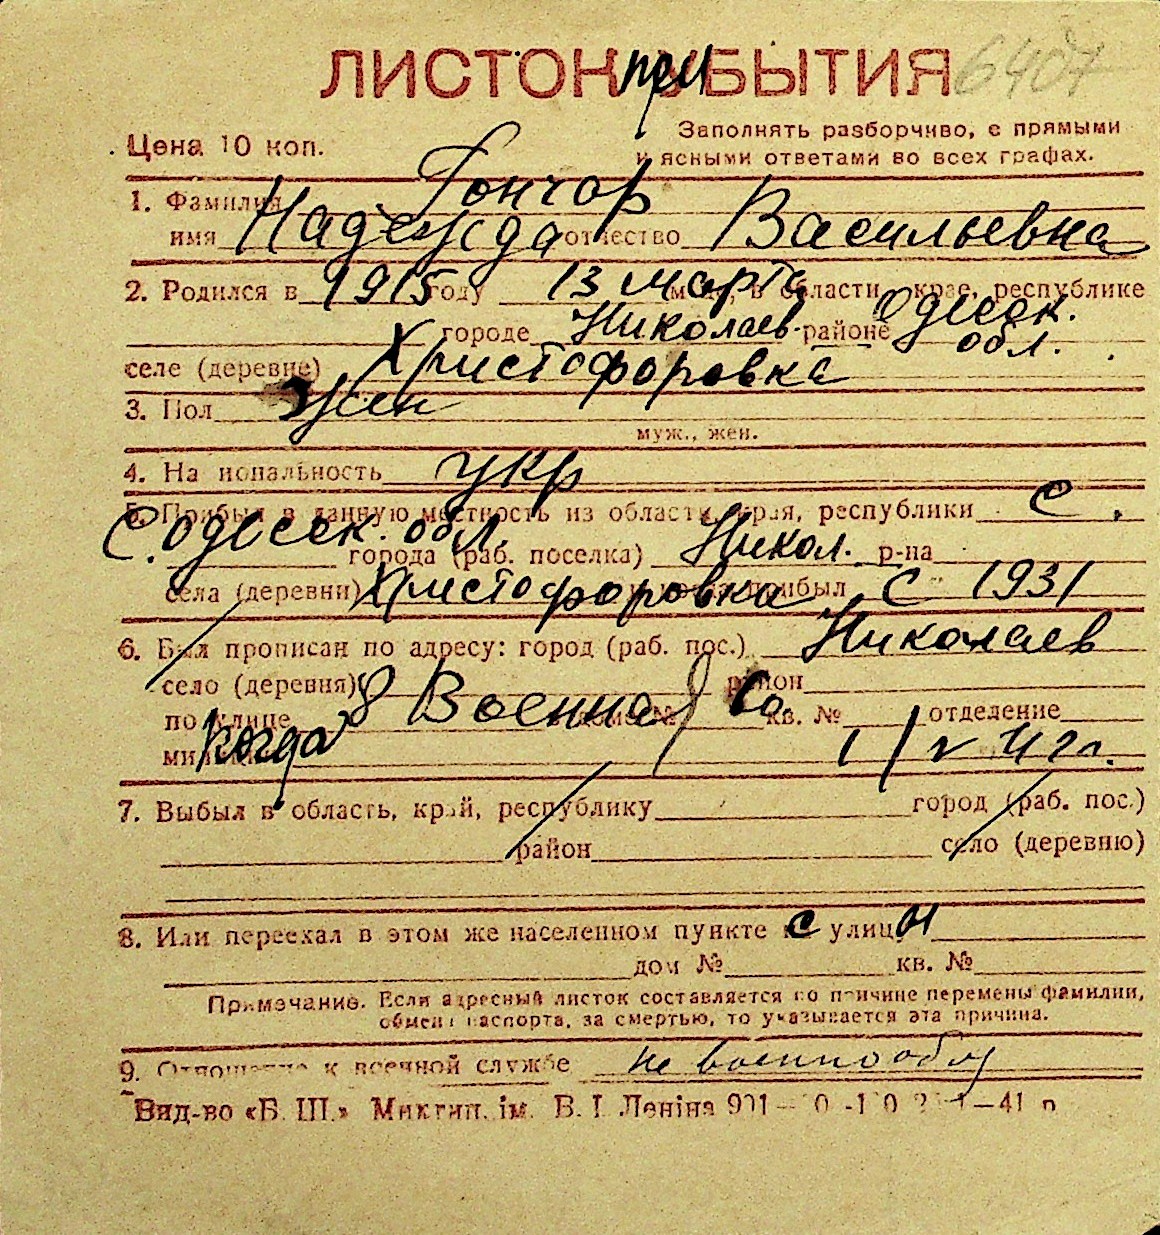 ЛИСТОК при УБЫТИЯ 6407
Цена 10 коп. Заполнять разборчиво, с прямыми
и ясными ответами во всех графах.
1. Фамилия Гончар
имя Надежда отчество Васильевна
2. Родился в 1915 году 13 марта м-ца, в области, крае, республике
городе Николаев. районе Одесск. обл.
селе (деревне) Христофоровка
3. Пол Жен
муж., жен.
4. Национальность укр
5. Прибыл в данную местность из области, края, республики С.
С. Одесск. обл. города (раб. поселка) Никол. р-на
села (деревни) Христофоровка прибыл с 1931
6. Был прописан по адресу: город (раб. пос.) Николаев
село (деревня) район
по улице 8 Военная кв. № отделение
Когда 1/V 42 г.
7. Выбыл в область, край, республику город (раб. пос.)
район село (деревню)
8. Или переехал в этом же населенном пункте с улицы
дом № кв. №
Примечание. Если адресный листок составляется по причине перемены фамилии,
обмена паспорта, за смертью, то указывается эта причина.
9. Отношение к военной службе не военнообяз
Вид-во «Б. Ш.» Миктип. ім. В. І. Леніна